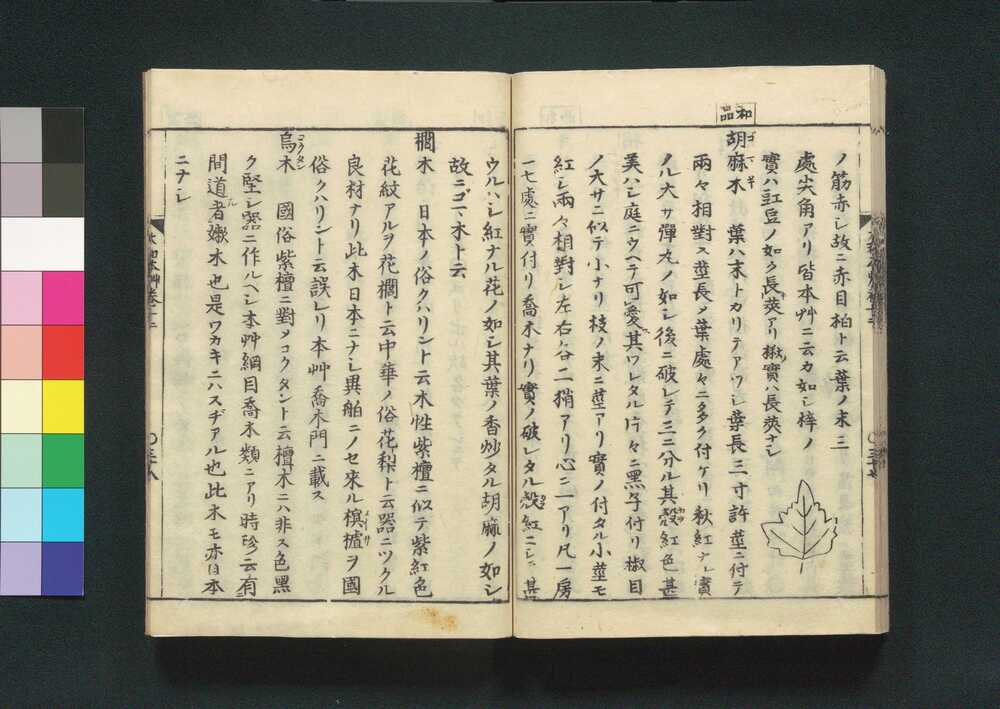 ノ筋赤シ故ニ赤目柏ト云葉ノ末三
處尖角アリ皆本艸ニ云カ如シ梓ノ
實ハ豇豆ノ如ク長莢アリ楸實ハ長莢ナシ
和品
胡麻木 葉ハ末トカリテアツシ葉長三寸許莖ニ付テ
兩々相對ス莖長ク葉處々ニ多ク付ケリ秋紅ナル實
ノル大サ彈丸ノ如シ後ニ破レテ三ニ分ル其殼紅色甚
美ハシ庭ニウヘテ可愛其ワレタル片々ニ黑子付リ椒目
ノ大サニ似テ小ナリ枝ノ末ニ莖アリ實ノ付タル小莖モ
紅シ兩々相對シ左右各二梢アリ心ニ一アリ凡一房
一七處ニ實付リ喬木ナリ實ノ破レタル殼紅ニシテ甚
ウルハシ紅ナル花ノ如シ其葉ノ香炒タル胡麻ノ如シ
故ニゴマ木ト云
櫚木 日本ノ俗クハリント云木性紫檀ニ似テ紫紅色
花紋アルヲ花櫚ト云中華ノ俗花梨ト云器ニツクル
良材ナリ此木日本ニナシ異舶ニノセ來ル榠樝ヲ國
俗クハリント云誤レリ本艸喬木門ニ載ス
烏木 國俗紫檀ニ對メコクタント云檀木ニハ非ス色黑
ク堅シ器ニ作ルヘシ本艸綱目喬木類ニアリ時珍云有
間道者嫩木也是ワカキニハスヂアル也此木モ亦日本
ニナシ
大和本艸卷十二
〇三十八